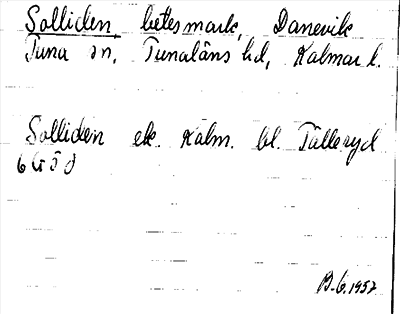 Solliden, betesmark, Danevik
Tuna sn, Tunaläns hd, Kalmar l.
Solliden ek. Kalm. bl. Tälleryd
6G5d
1957